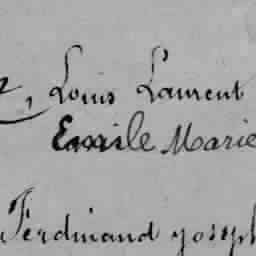 , Louis Laurent
Emile Marie
Ferdinand Joseph